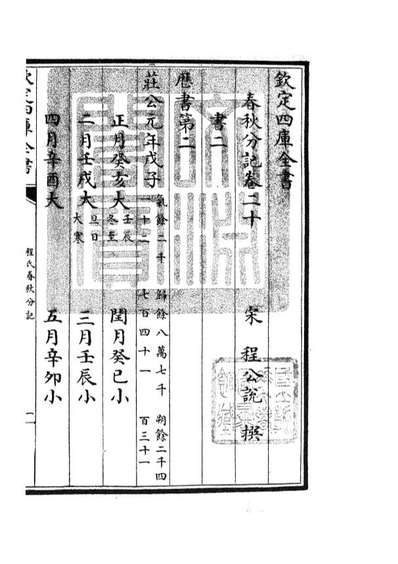 欽定四庫全書
春秋分記卷二十 宋 程公說 撰
書二
厯書第二
莊公元年戊子 氣餘二千 歸餘八萬七千七百四十一 朔餘二千四百三十一
正月癸亥大 壬辰冬至 閏月癸巳小
二月壬戌大 旦日大寒 三月壬辰小
四月辛酉大 五月辛卯小
欽定四庫全書 程氏春秋分記 一